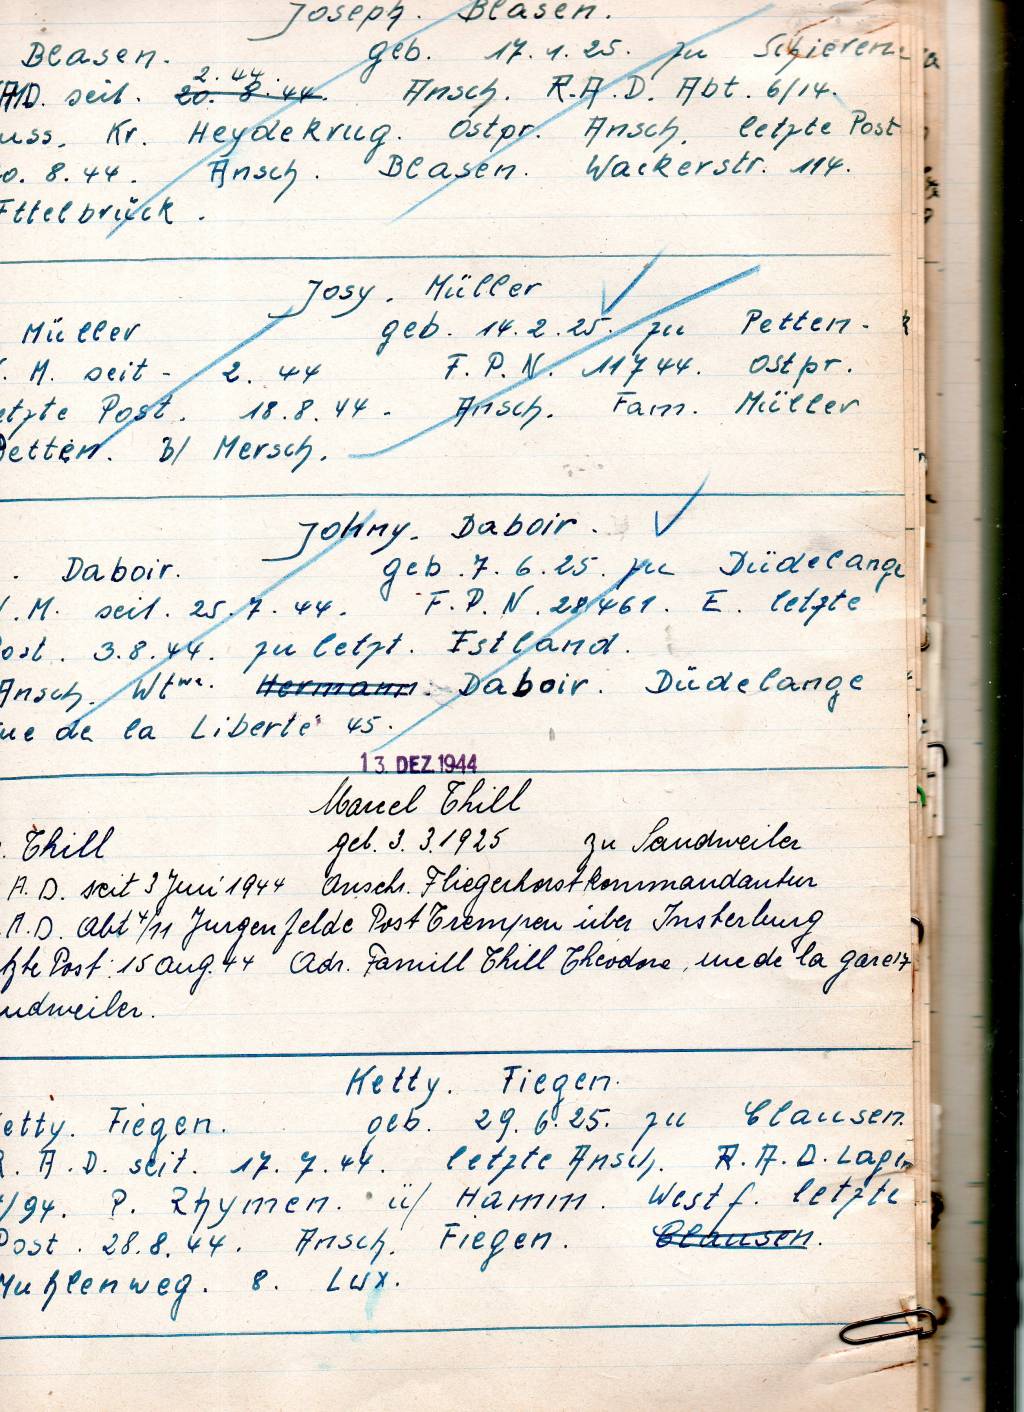 Joseph. Blasen.
Blasen. geb. 17.1.25. zu Schieren.
2.44.
A.D. seit. 20.8.44. Ansch. R.A.D. Abt. 6/14.
uss. Kr. Heydekrug. Ostpr. Ansch. letzte Post
0.8.44. Ansch. Blasen. Wackerstr. 114.
Ettelbrück.
Josy. Müller
Müller geb. 14.2.25. zu Petten.
. M. seit - 2. 44 F. P. N. 11744. Ostpr.
etzte Post. 18.8.44 - Ansch. Fam. Müller
Petten. B/ Mersch.
Johny. Daboir.
. Daboir. geb. 7. 6.25. zu Düdelange
.M. seit. 25.7.44. F.P.N. 28461. E. letzte
Post. 3.8.44. zu letzt. Estland.
Ansch. Wtwe. Hermann. Daboir. Düdelange
ue de la Liberté 45.
13. DEZ. 1944
Marcel Thill
. Thill geb. 3. 3. 1925 zu Sandweiler
A. D. seit 3 Juni 1944 Anschr. Fliegerhorstkommandantur
.A.D. Abt 4/11 Jurgenfelde Post Trempen über Insterburg
tzte Post: 15 Aug. 44 Adr. Famill Thill Théodore, rue de la gare 17
ndweiler.
Ketty. Fiegen.
etty. Fiegen. geb. 29.6.25. zu Clausen.
R. A.D. seit. 17.7.44. letzte Ansch. R.A.D. Lager
/94. P. Rhymen. ü/ Hamm. Westf. letzte
Post. 28.8.44. Ansch. Fiegen. Clausen.
Muhlenweg. 8. Lux.